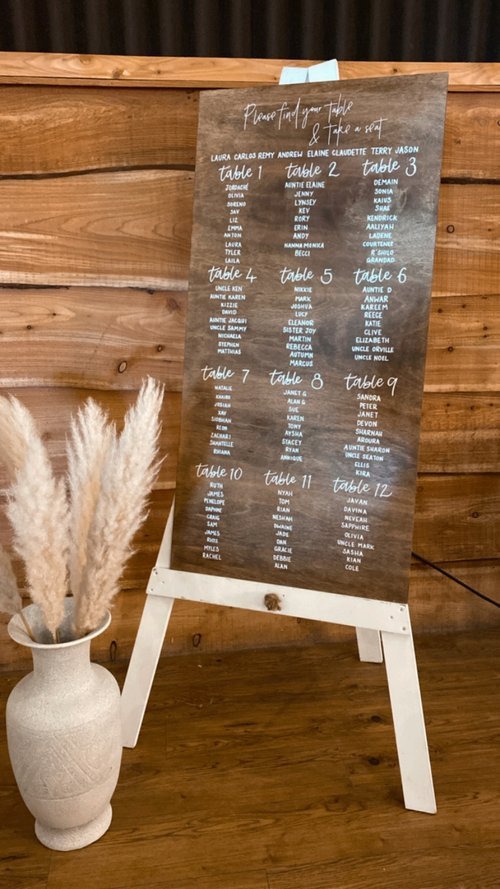 Please find your table
& take a seat
LAURA CARLOS REMY ANDREW ELAINE CLAUDETTE TERRY JASON
table 1
JORDACHÉ
OLIVIA
SORENO
JAY
LIZ
EMMA
ANTON
LAURA
TYLER
LAILA
table 2
AUNTIE ELAINE
JENNY
LYNSEY
KEV
RORY
ERIN
ANDY
HANNAMONIKA
BECCI
table 3
DEMAIN
SONIA
KAIUS
SHAE
KENDRICK
AALIYAH
LADENE
COURTENEE
R'SHILO
GRANDAD
table 4
UNCLE KEN
AUNTIE KAREN
KIZZIE
DAVID
AUNTIE JACQUI
UNCLE SAMMY
MICHAELA
STEPHEN
MATTHIAS
table 5
NIKKIE
MARK
JOSHUA
LUCY
ELEANOR
SISTER JOY
MARTIN
REBECCA
AUTUMN
MARCUS
table 6
AUNTIE D
ANWAR
KAREEM
REECE
KATIE
CLIVE
ELIZABETH
UNCLE ORVILLE
UNCLE NOEL
table 7
NATALIE
JOSIAH
XAY
SIOBHAN
REON
ZACHARI
SHANTELLE
RHIANA
table 8
JANET G
ALAN G
SUE
KAREN
TONY
AYSHA
STACEY
RYAN
ANNIQUE
table 9
SANDRA
PETER
JANET
DEVON
SHARNAH
AROURA
AUNTIE SHARON
UNCLE SEATON
ELLIS
KIRA
table 10
RUTH
JAMES
PENELOPE
DAPHNE
CRAIG
SAM
JAMES
RIOS
MYLES
RACHEL
table 11
NYAH
TOM
RIAN
NESHAN
DWAINE
JADE
DAN
GRACIE
DEBBIE
ALAN
table 12
JAVAN
DAVINA
NEVEAH
SAPPHIRE
OLIVIA
UNCLE MARK
SASHA
KIAN
COLE